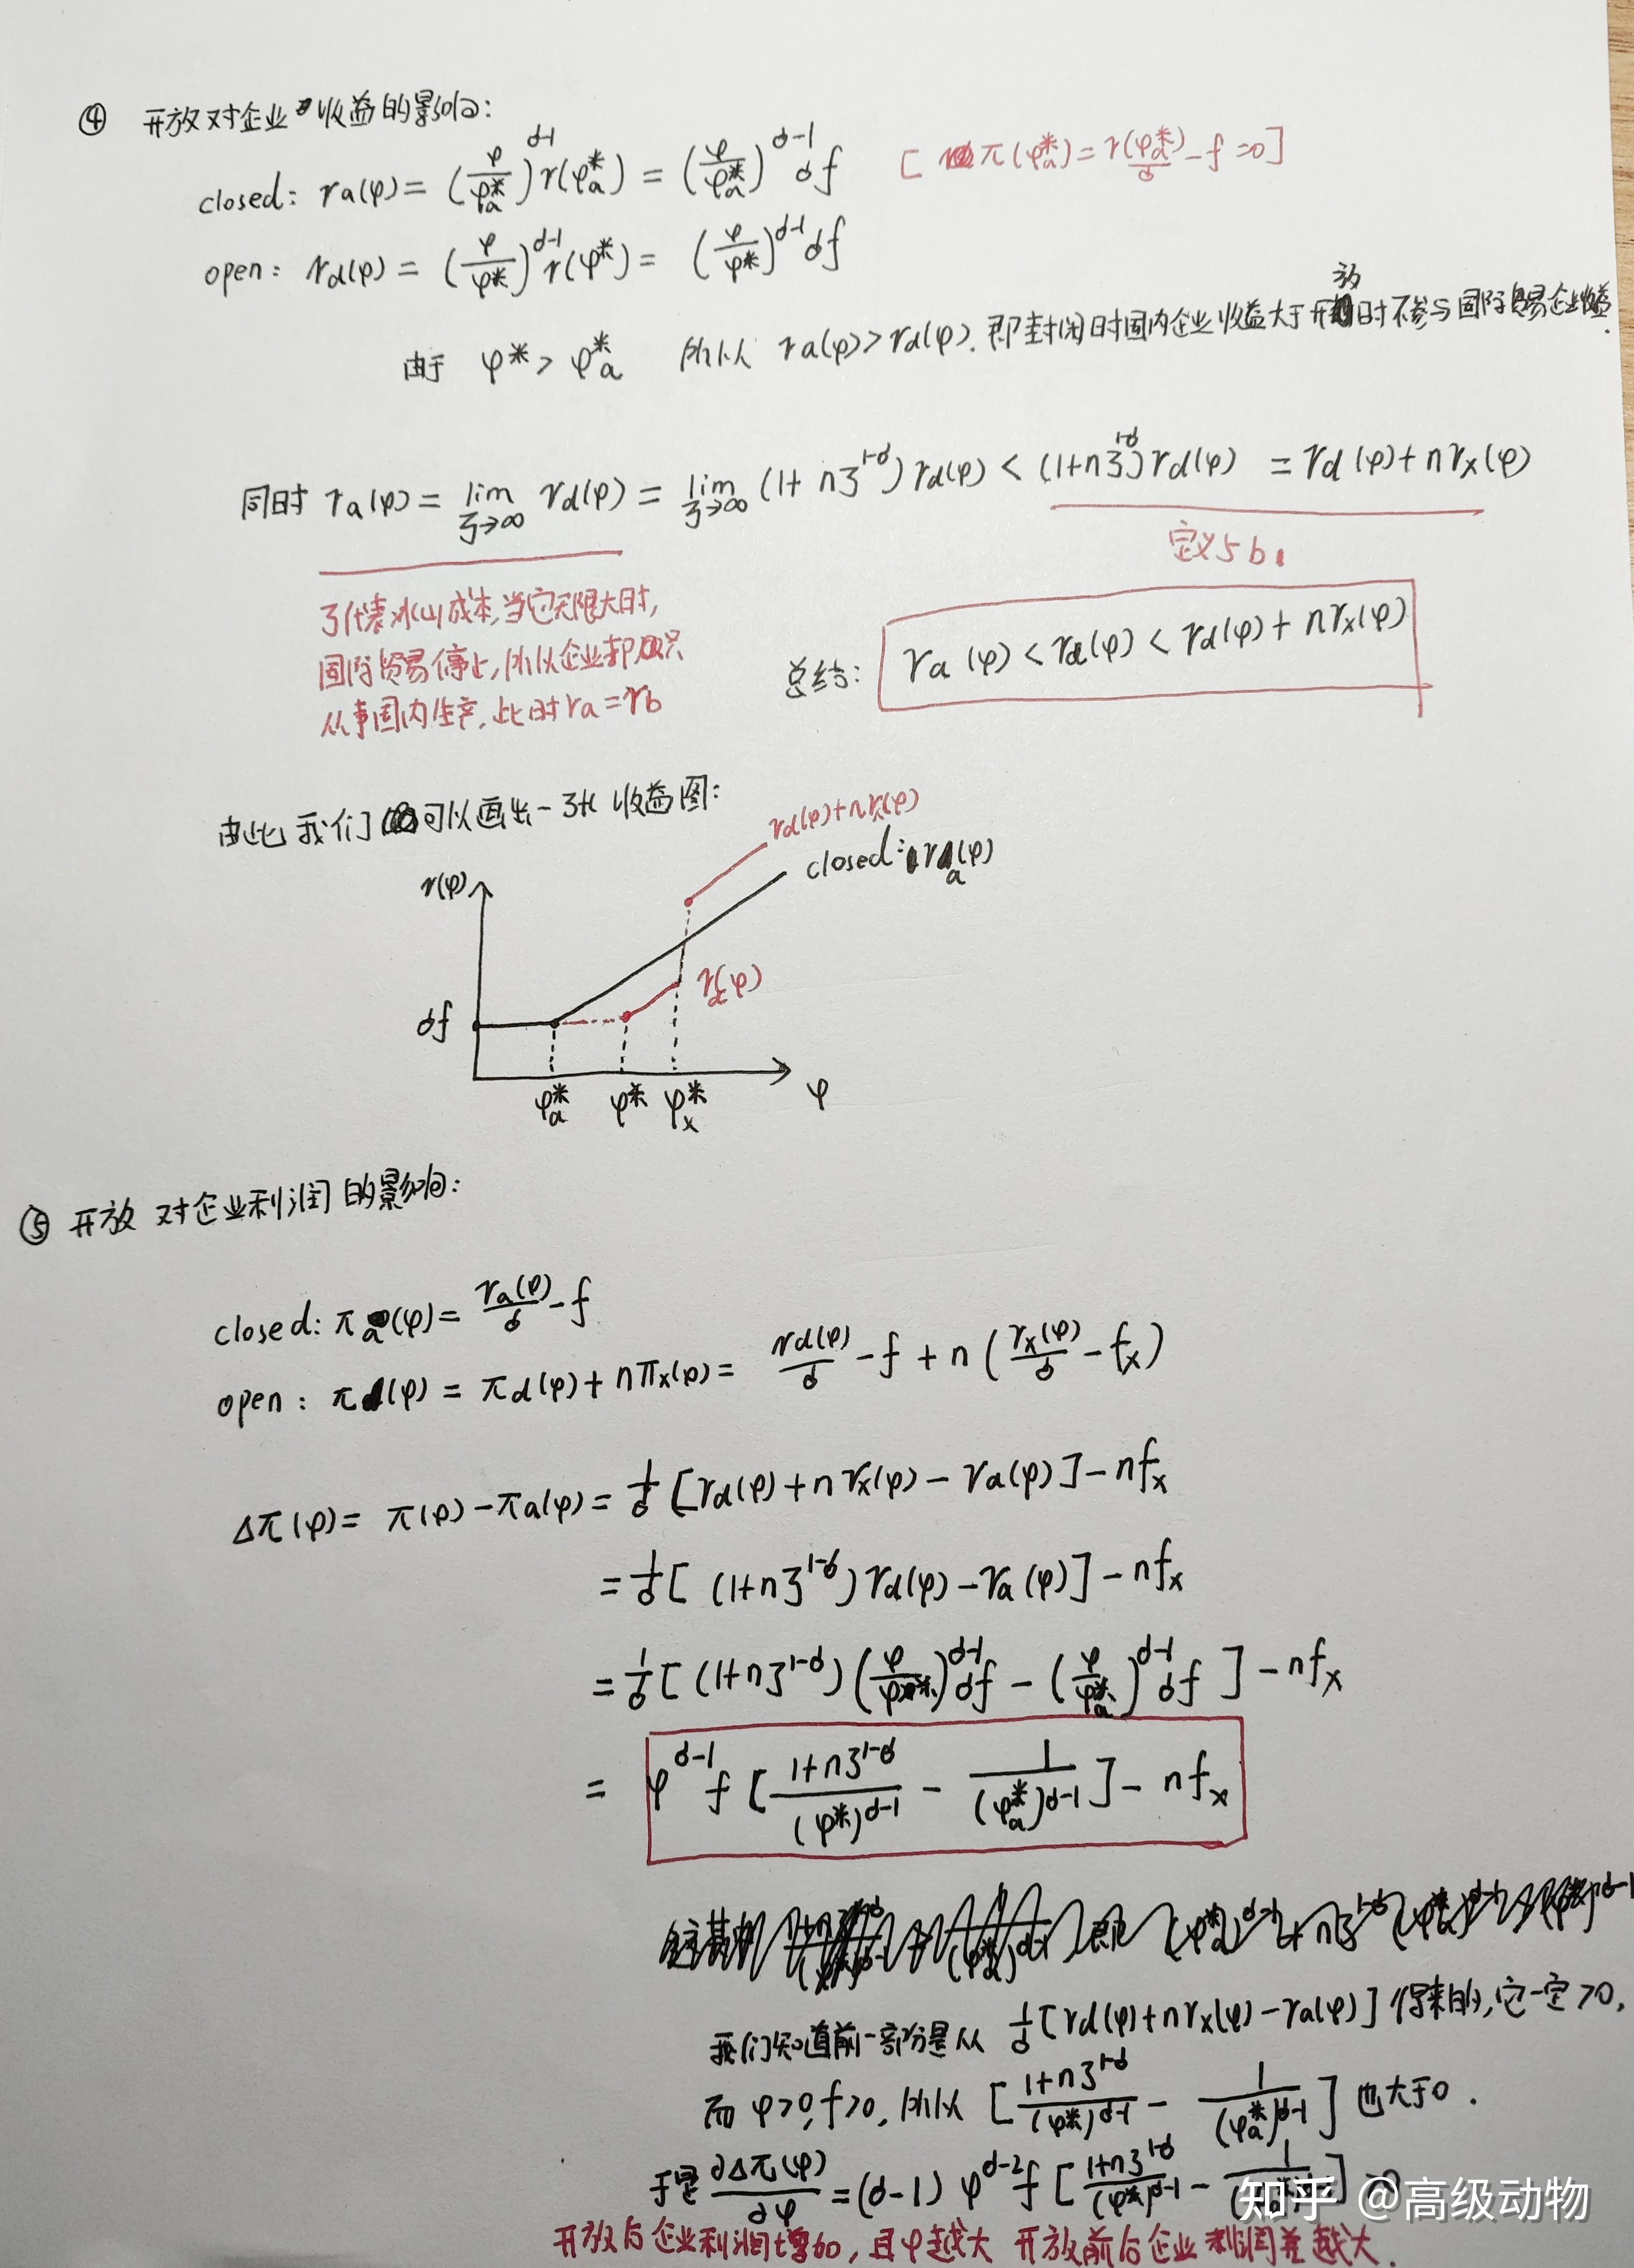 ④ 开放对企业收益的影响:
closed: ra(φ) = (φ/φa*)^(σ-1) r(φa*) = (φ/φa*)^(σ-1) σf [ π(φa*) = r(φa*)/σ - f = 0 ]
open: rd(φ) = (φ/φ*)^(σ-1) r(φ*) = (φ/φ*)^(σ-1) σf
由于 φ* > φa* 所以 ra(φ) > rd(φ). 即封闭时国内企业收益大于开放时不参与国际贸易企业收益.
同时 ra(φ) = lim ζ→∞ rd(φ) = lim ζ→∞ (1+nζ^(1-σ)) rd(φ) < (1+nζ^(1-σ)) rd(φ) = rd(φ) + n rx(φ)
定义5b
ζ代表冰山成本,当它无限大时,
国际贸易停止,所以企业都只
从事国内生产,此时ra=rb
总结: ra(φ) < rd(φ) < rd(φ) + n rx(φ)
由此我们可以画出一张收益图:
rd(φ)+nrx(φ)
closed: ra(φ)
r(φ)
rd(φ)
σf
φa* φ* φx* φ
⑤ 开放对企业利润的影响:
closed: πa(φ) = ra(φ)/σ - f
open: πd(φ) = πd(φ) + nπx(φ) = rd(φ)/σ - f + n(rx(φ)/σ - fx)
Δπ(φ) = π(φ) - πa(φ) = 1/σ [rd(φ) + n rx(φ) - ra(φ)] - nfx
= 1/σ [(1+nζ^(1-σ)) rd(φ) - ra(φ)] - nfx
= 1/σ [(1+nζ^(1-σ)) (φ/φ*)^(σ-1) σf - (φ/φa*)^(σ-1) σf] - nfx
= φ^(σ-1) f [(1+nζ^(1-σ))/(φ*)^(σ-1) - 1/(φa*)^(σ-1)] - nfx
我们知道前一部分是从 1/σ [rd(φ) + n rx(φ) - ra(φ)] 得来的,它一定>0,
而 φ>0, f>0, 所以 [(1+nζ^(1-σ))/(φ*)^(σ-1) - 1/(φa*)^(σ-1)] 也大于0.
于是 ∂Δπ(φ)/∂φ = (σ-1) φ^(σ-2) f [(1+nζ^(1-σ))/(φ*)^(σ-1) - 1/(φa*)^(σ-1)] >0
知乎 @高级动物
开放后企业利润增加,且φ越大 开放前后企业利润差越大.